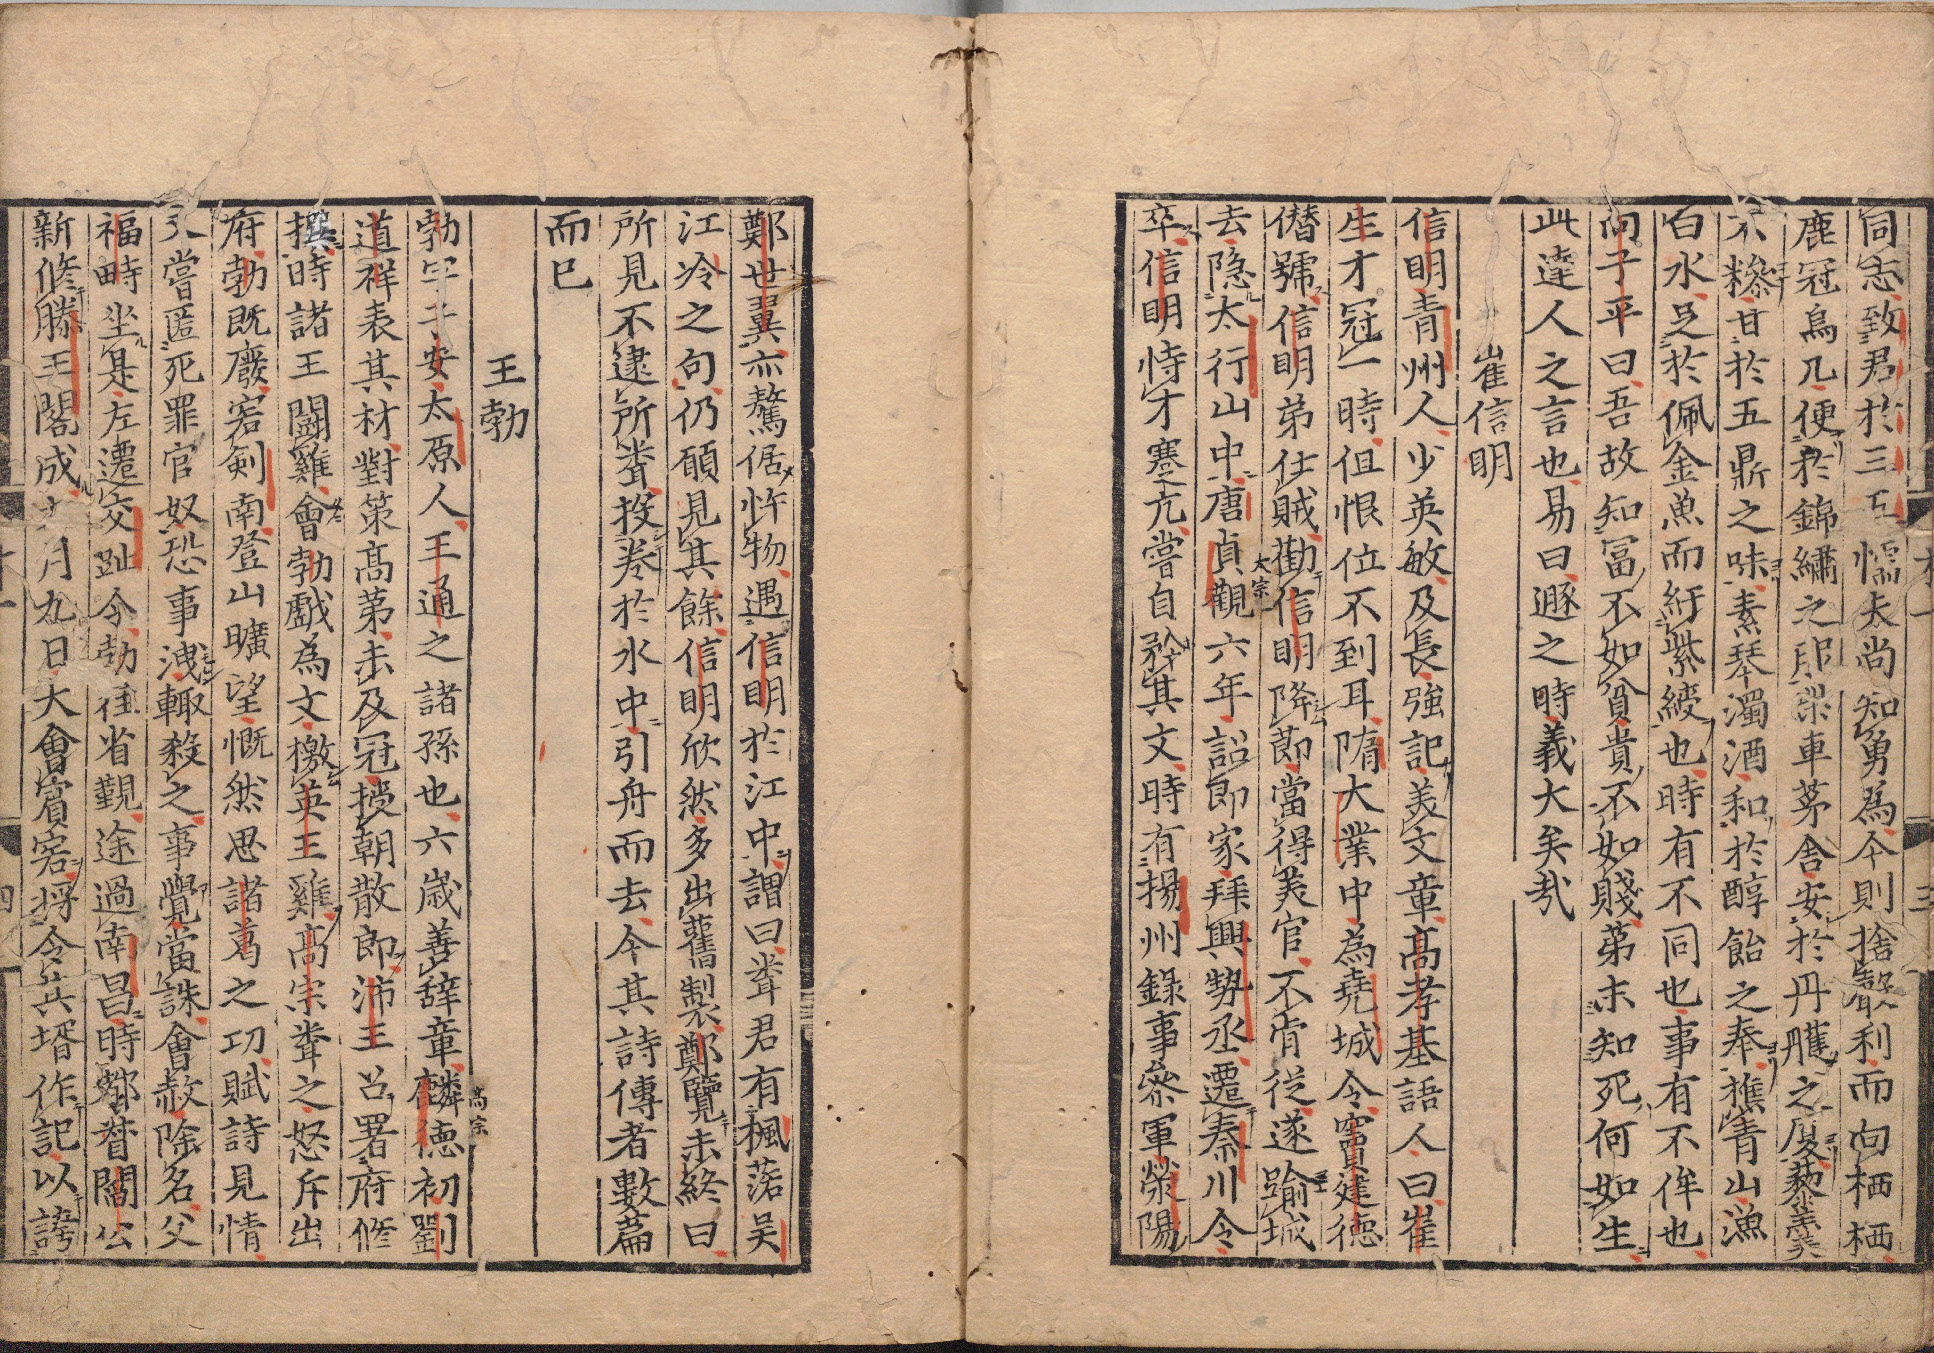 同志致君於三五懦夫尚知勇爲今則捨聲利而向栖栖
鹿冠烏几便於錦繡之服梁車茅舎安於丹雘之廈藜羹
不糝甘於五鼎之味素琴濁酒和於醇飴之奉樵青山漁
白水足於佩金魚而紆紫綬也時有不同也事有不侔也
向子平曰吾故知冨不如貧貴不如賤苐未知死何如生
此達人之言也易曰遯之時義大矣㢤
崔信明
信明青州人少英敏及長強記美文章髙孝基語人曰崔
生才冠一時但恨位不到耳隋大業中為堯城令竇建德
僣號信明弟仕賊勸信明降莭當得美官不肯從遂踰城
去隐太行山中唐貞觀六年詔即家拜興勢丞遷秦川令
太宗
卒信明恃才蹇亢嘗自矜其文時有揚州錄事叅軍滎陽
鄭世翼亦驁倨忤物遇信明於江中謂曰甞君有楓落吴
江冷之句仍願見其餘信明欣然多出舊製鄭覽未終曰
所見不逮所甞投巻於水中引舟而去今其詩傳者數篇
而已
王勃
勃字子安太原人王通之諸孫也六歳善辞章麟德初劉
髙宗
道祥表其材對策髙苐未及冠授朝散郎沛王召署府修
撰時諸王闘雞會勃戯為文檄英王雞髙宗甞之怒斥出
府勃既廢客剣南登山曠望慨然思諸葛之功賦詩見情
又嘗匿死罪官奴恐事洩輙殺之事覺當誅會赦除名父
福畤坐是左遷交趾令勃往省覲途過南昌時都督閻公
新修滕王閣成九月九日大會賓客将令其壻作記以誇